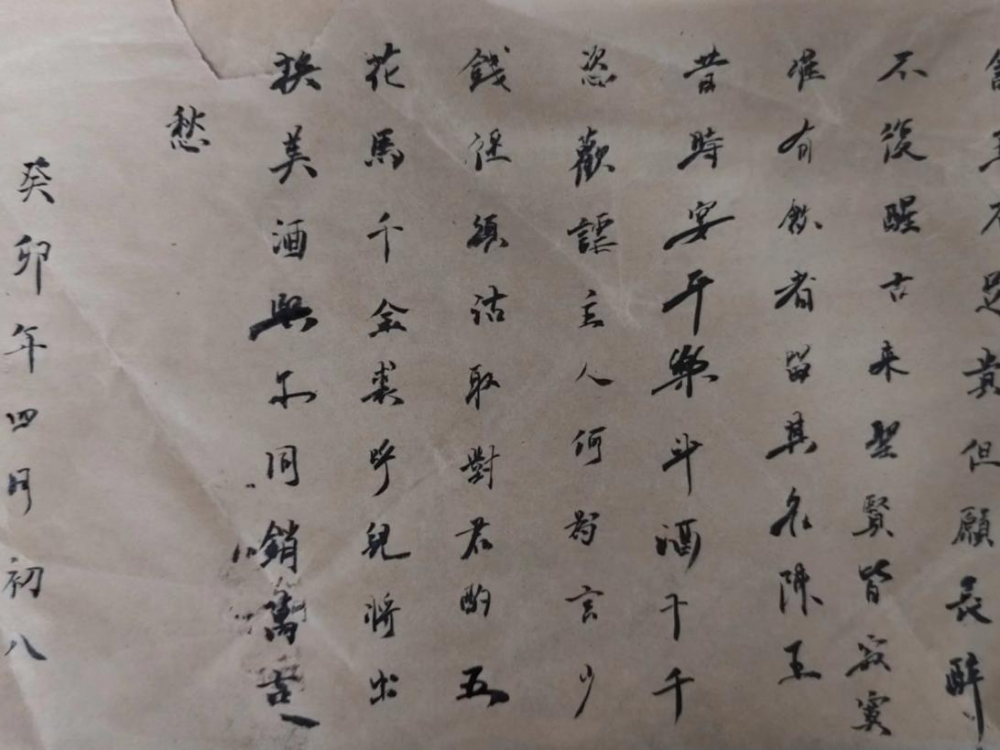 玉不足貴但願長醉
不復醒古来聖賢皆寂寞
惟有飲者留其名陳王
昔時宴平樂斗酒十千
恣歡謔主人何為言少
錢徑須沽取對君酌五
花馬千金裘呼兒將出
換美酒與尔同銷萬古
愁
癸卯年四月初八